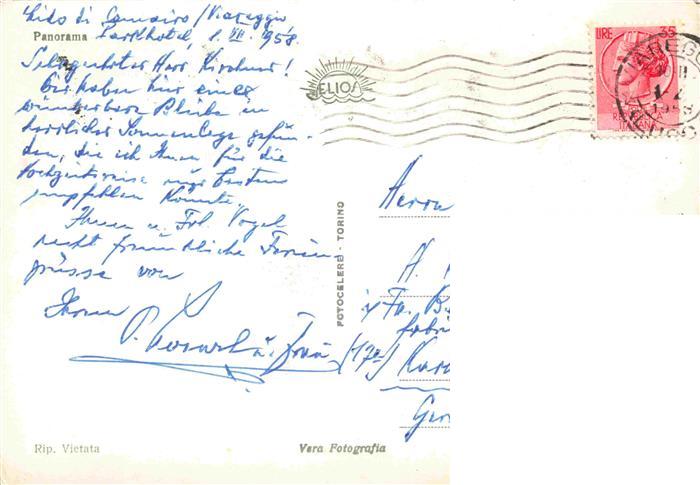 Lido di Camaiore/Viareggio
Panorama Parkhotel, 1. VII. 1958.
Sehr geehrter Herr Kirchner!
Wir haben hier eine
wunderbare Bleibe in
herrlicher Sonnenlage gefun-
den, die ich Ihnen für die
Hochzeitsreise nur bestens
empfehlen könnte.
Ihnen u. Frl. Vogel
recht freundliche Ferien-
grüsse von
Ihrem
P. u. Frau
HELIOS
LIRE 35
FOTOCELERE - TORINO
Herrn
(17a)
Rip. Vietata
Vera Fotografia